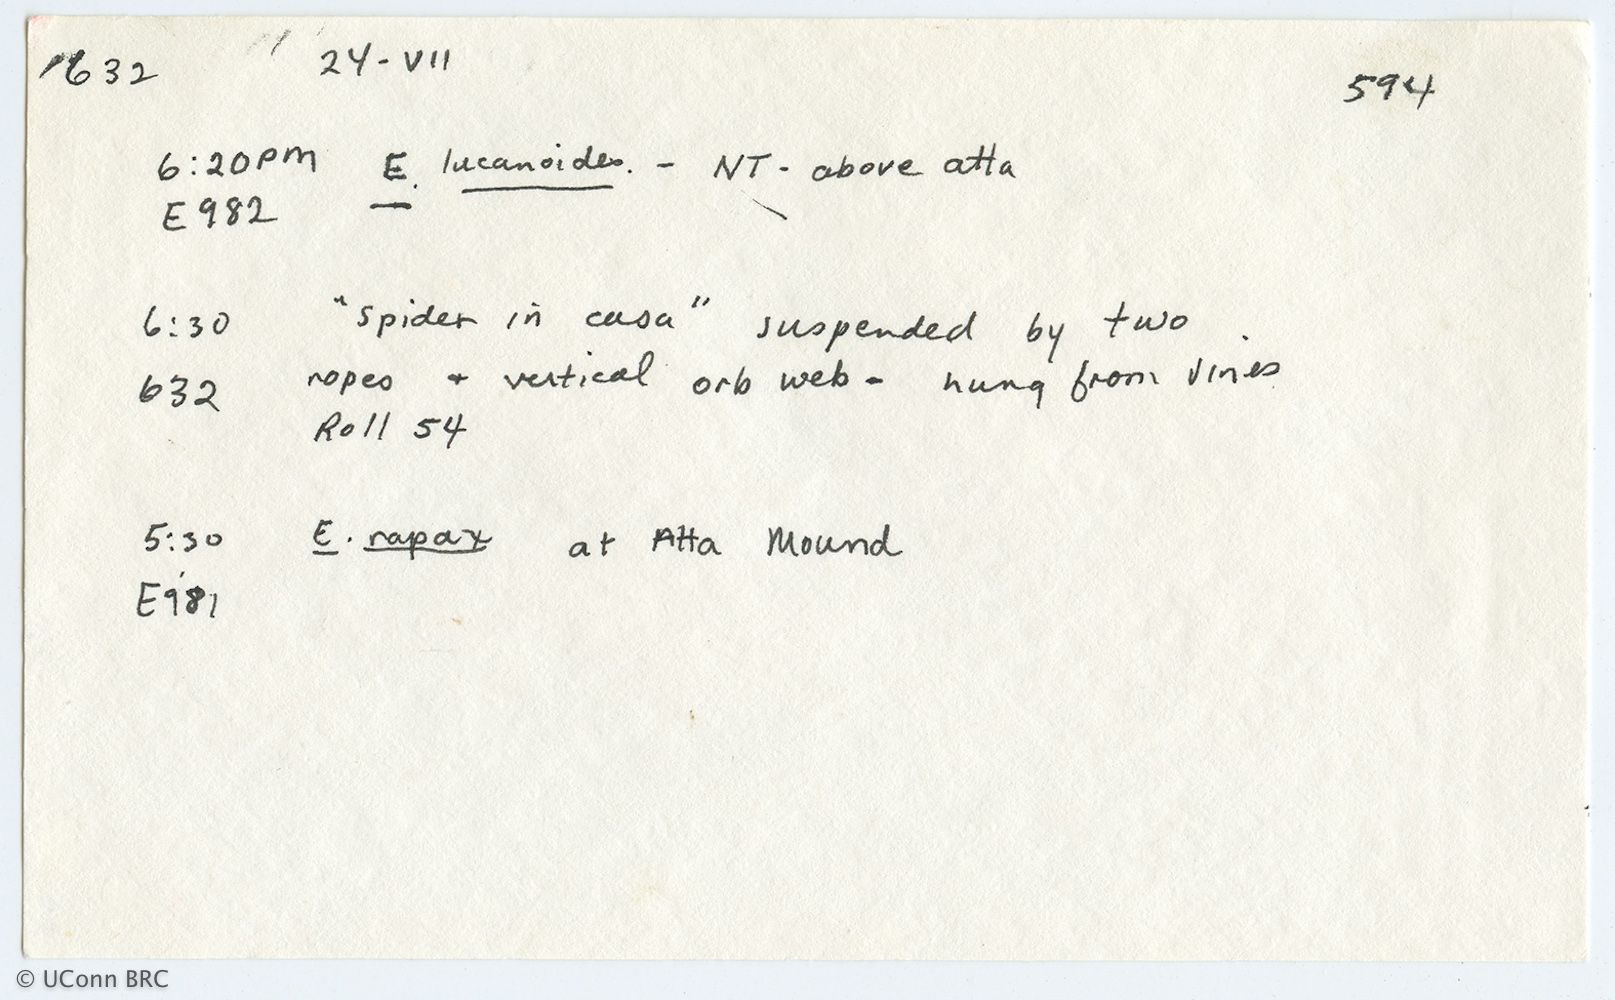 632 24-VII 594
6:20PM E. lucanoides. - NT - above atta
E982
6:30 "spider in casa" suspended by two
632 ropes + vertical orb web - hung from vines
Roll 54
5:30 E. rapax at Atta Mound
E981
© UConn BRC